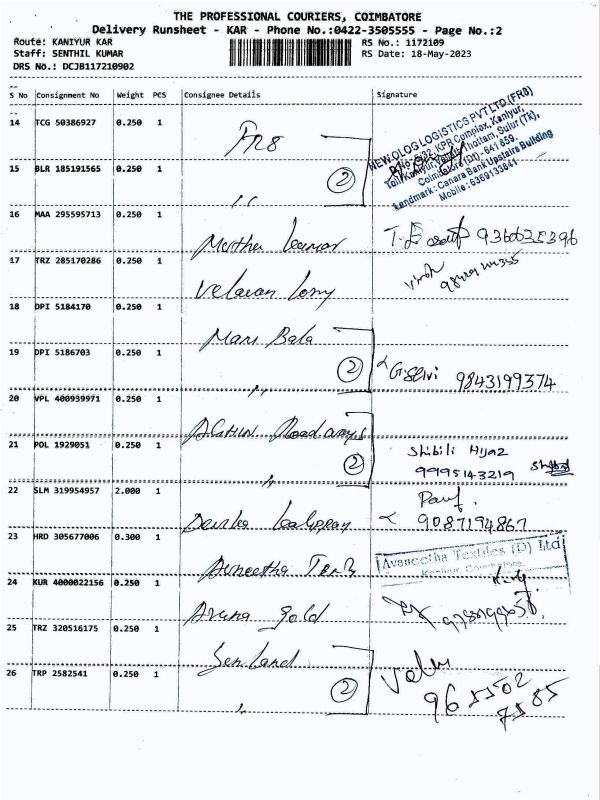 THE PROFESSIONAL COURIERS, COIMBATORE
Delivery Runsheet - KAR - Phone No.:0422-3505555 - Page No.:2
Route: KANIYUR KAR RS No.: 1172109
Staff: SENTHIL KUMAR RS Date: 18-May-2023
DRS No.: DCJB117210902
S No Consignment No Weight PCS Consignee Details Signature
14 TCG 50386927 0.250 1 FR8
NEW OLOG LOGISTICS PVT LTD (FR8)
KPR Complex, Kaniyur,
Toll Kaniyur, Thottam, Sulur (Tk),
Coimbatore (Dt) - 641 659.
Landmark : Canara Bank Upstairs Building
Mobile : 6369133841
15 BLR 185191565 0.250 1 ,, 2
16 MAA 295595713 0.250 1
17 TRZ 285170286 0.250 1 Velavan
18 DPI 5184170 0.250 1 Mani Bala
19 DPI 5186703 0.250 1 ,, 2 G.Selvi 9843199374
20 VPL 400939971 0.250 1
21 POL 1929051 0.250 1 ,, 2 Shibili Hijaz
9995143219
22 SLM 319954957 2.000 1 9087194867
23 HRD 305677006 0.300 1 Avneetha
Avaneetha Textiles (P) Ltd
Kaniyur, Coimbatore.
24 KUR 4000022156 0.250 1 Aruna Gold
25 TRZ 320516175 0.250 1 Sen Land
26 TRP 2582541 0.250 1 ,, 2 Velu
965502
7585